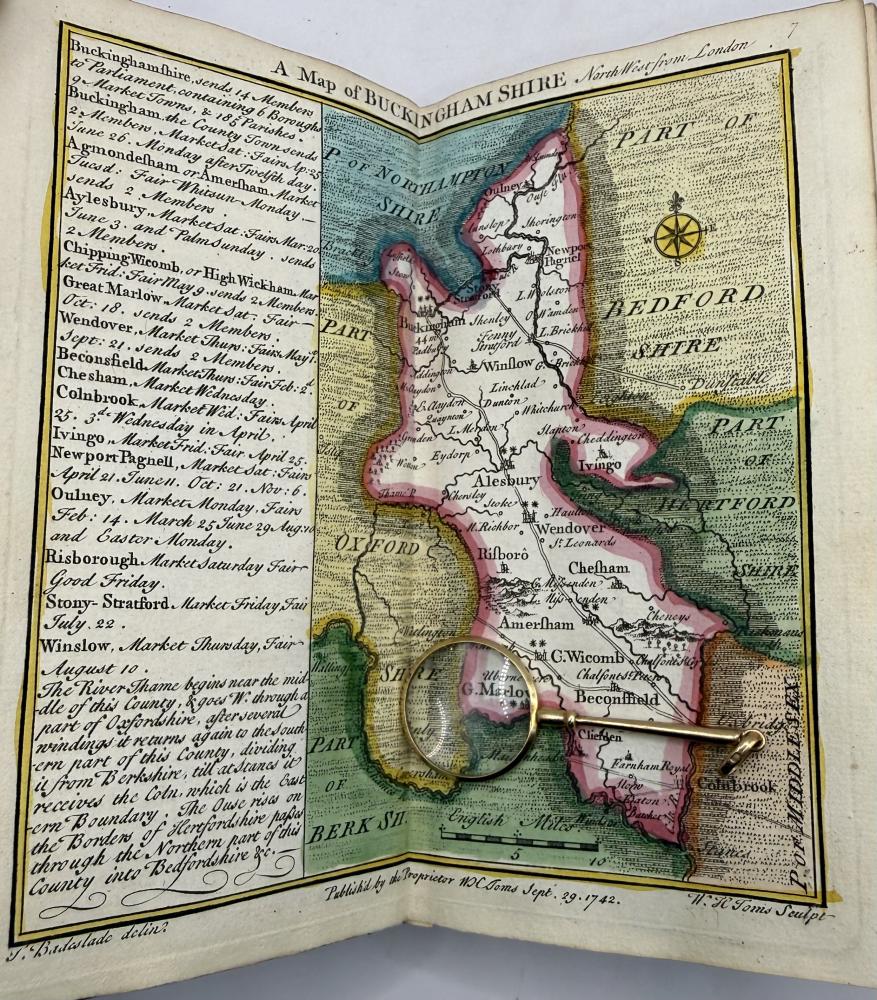 7
A Map of BUCKINGHAM SHIRE North West from London
Buckinghamshire, sends 14 Members
to Parliament, containing 6 Boroughs
9 Market Towns, & 185 Parishes.
Buckingham, the County Town sends
2 Members, Market Sat: Fairs Ap: 25
June 26. Monday after Twelfth day.
Agmondesham or Amersham, Market
Tuesd: Fair Whitsun-Monday
sends 2 Members.
Aylesbury, Market Sat. Fairs Mar: 20
June 3. and Palm Sunday. sends
2 Members.
Chipping Wicomb, or High Wickham, Mar
ket Frid: Fair May 9. sends 2 Members.
Great Marlow, Market Sat: Fair
Oct: 18. sends 2 Members.
Wendover, Market Thurs: Fairs May 1.
Sept: 21. sends 2 Members.
Beconsfield, Market Thurs: Fair Feb: 2.d
Chesham, Market Wednesday.
Colnbrook, Market Wed: Fairs April
25. 3.d Wednesday in April.
Ivingo, Market Frid: Fair April 25.
Newport Pagnell, Market Sat: Fairs
April 21. June 11. Oct: 21. Nov: 6.
Oulney, Market Monday, Fairs
Feb: 14. March 25 June 29 Aug: 10
and Easter Monday.
Risborough Market Saturday Fair
Good Friday.
Stony-Stratford Market Friday Fair
July. 22.
Winslow, Market Thursday, Fair
August 10.
The River Thame begins near the mid-
dle of this County, & goes W. through a
part of Oxfordshire, after several
windings it returns again to the South
ern part of this County, dividing
it from Berkshire, till at Stanes it
receives the Coln, which is the East
-ern Boundary; The Ouse rises on
the Borders of Hertfordshire passes
through the Northern part of this
County into Bedfordshire &c.
P. OF NORTHAMPTON
SHIRE
PART OF
BEDFORD
SHIRE
W E
S
Oulney
Ouse
Sherington
Lothbury
Newport
Pagnel
Stony
Stratford
Stow
L. Woolston
Buckingham
Shenley
O Wamden
Fenny
Stratford
L. Brickhil
Padbury
Winslow
G. Brickhil
Addington
Dunstable
PART
OF
Linchlad
Dunton
Whitchurch
Quaynton
Slapton
Cheddington
Ivingo
Eydorp
Wotton
Alesbury
Thame R.
Chersley
Stoke
PART
OF
HERTFORD
SHIRE
OXFORD
SHIRE
Wendover
St. Leonards
Risboro
Chesham
G. Missenden
L. Missenden
Amersham
Cheneys
C. Wicomb
Chalfonts Peter
G. Marlow
Beconsfield
Cliefden
Farnham Royal
Slow
Eaton
Colnbrook
Stanes
PART
OF
BERK SH.
P. OF MIDDLESEX
English Miles
5 10
Publish'd by the Proprietor W.H. Toms Sept. 29. 1742.
T. Badeslade delin.
W. H. Toms Sculpt